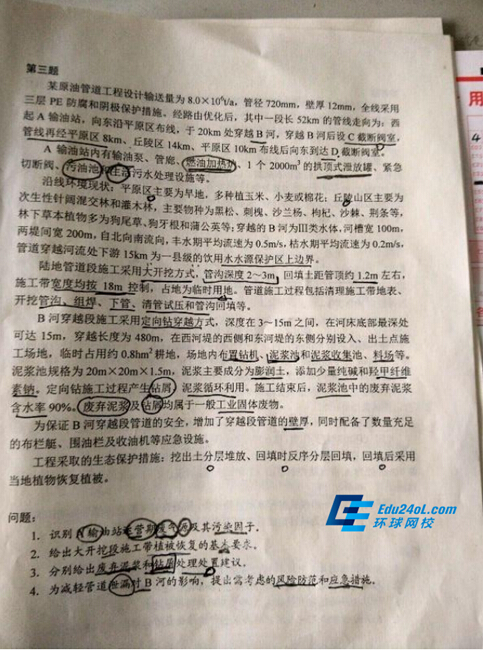 第三题
某原油管道工程设计输送量为8.0×10⁶t/a，管径720mm，壁厚12mm，全线采用
三层PE防腐和阴极保护措施、经路由优化后，其中一段长52km的管线走向为：西
起A输油站，向东沿平原区布线，于20km处穿越B河，穿越B河后设C截断阀室，
管线再经平原区8km、丘陵区14km、平原区10km布线后向东到达D截断阀室。
A输油站内有输油泵、管廊、燃油加热炉、1个2000m³的拱顶式泄放罐、紧急
切断阀、污油池和生活污水处理设施等。
沿线环境现状：平原区主要为旱地，多种植玉米、小麦或棉花；丘陵山区主要为
次生性针阔混交林和灌木林，主要物种为黑松、刺槐、沙兰杨、枸杞、沙棘、荆条等，
林下草本植物多为狗尾草、狗牙根和蒲公英等；穿越的B河为Ⅲ类水体，河槽宽100m，
两堤间宽200m，自北向南流向，丰水期平均流速为0.5m/s，枯水期平均流速为0.2m/s，
管道穿越河流处下游15km为一县级的饮用水水源保护区上边界。
陆地管道段施工采用大开挖方式，管沟深度2～3m，回填土距管顶约1.2m左右，
施工带宽度均按18m控制，占地为临时用地。管道施工过程包括清理施工带地表、
开挖管沟、组焊、下管、清管试压和管沟回填等。
B河穿越段施工采用定向钻穿越方式，深度在3～15m之间，在河床底部最深处
可达15m，穿越长度为480m，在西河堤的西侧和东河堤的东侧分别设入、出土点施
工场地，临时占用约0.8hm²耕地，场地内布置钻机、泥浆池和泥浆收集池、料场等。
泥浆池规格为20m×20m×1.5m，泥浆主要成分为膨润土，添加少量纯碱和羟甲纤维
素钠。定向钻施工过程产生钻屑、泥浆循环利用。施工结束后，泥浆池中的废弃泥浆
含水率90%。废弃泥浆及钻屑均属于一般工业固体废物。
为保证B河穿越段管道的安全，增加了穿越段管道的壁厚，同时配备了数量充足
的布栏艇、围油栏及收油机等应急设施。
工程采取的生态保护措施：挖出土分层堆放、回填时反序分层回填，回填后采用
当地植物恢复植被。
问题：
1. 识别A输油站运营期废气源及其污染因子。
2. 给出大开挖段施工带植被恢复的基本要求。
3. 分别给出废弃泥浆和钻屑处理处置建议。
4. 为减轻管道泄漏对B河的影响，提出需考虑的风险防范和应急措施。
Edu24oL.com
环球网校
用